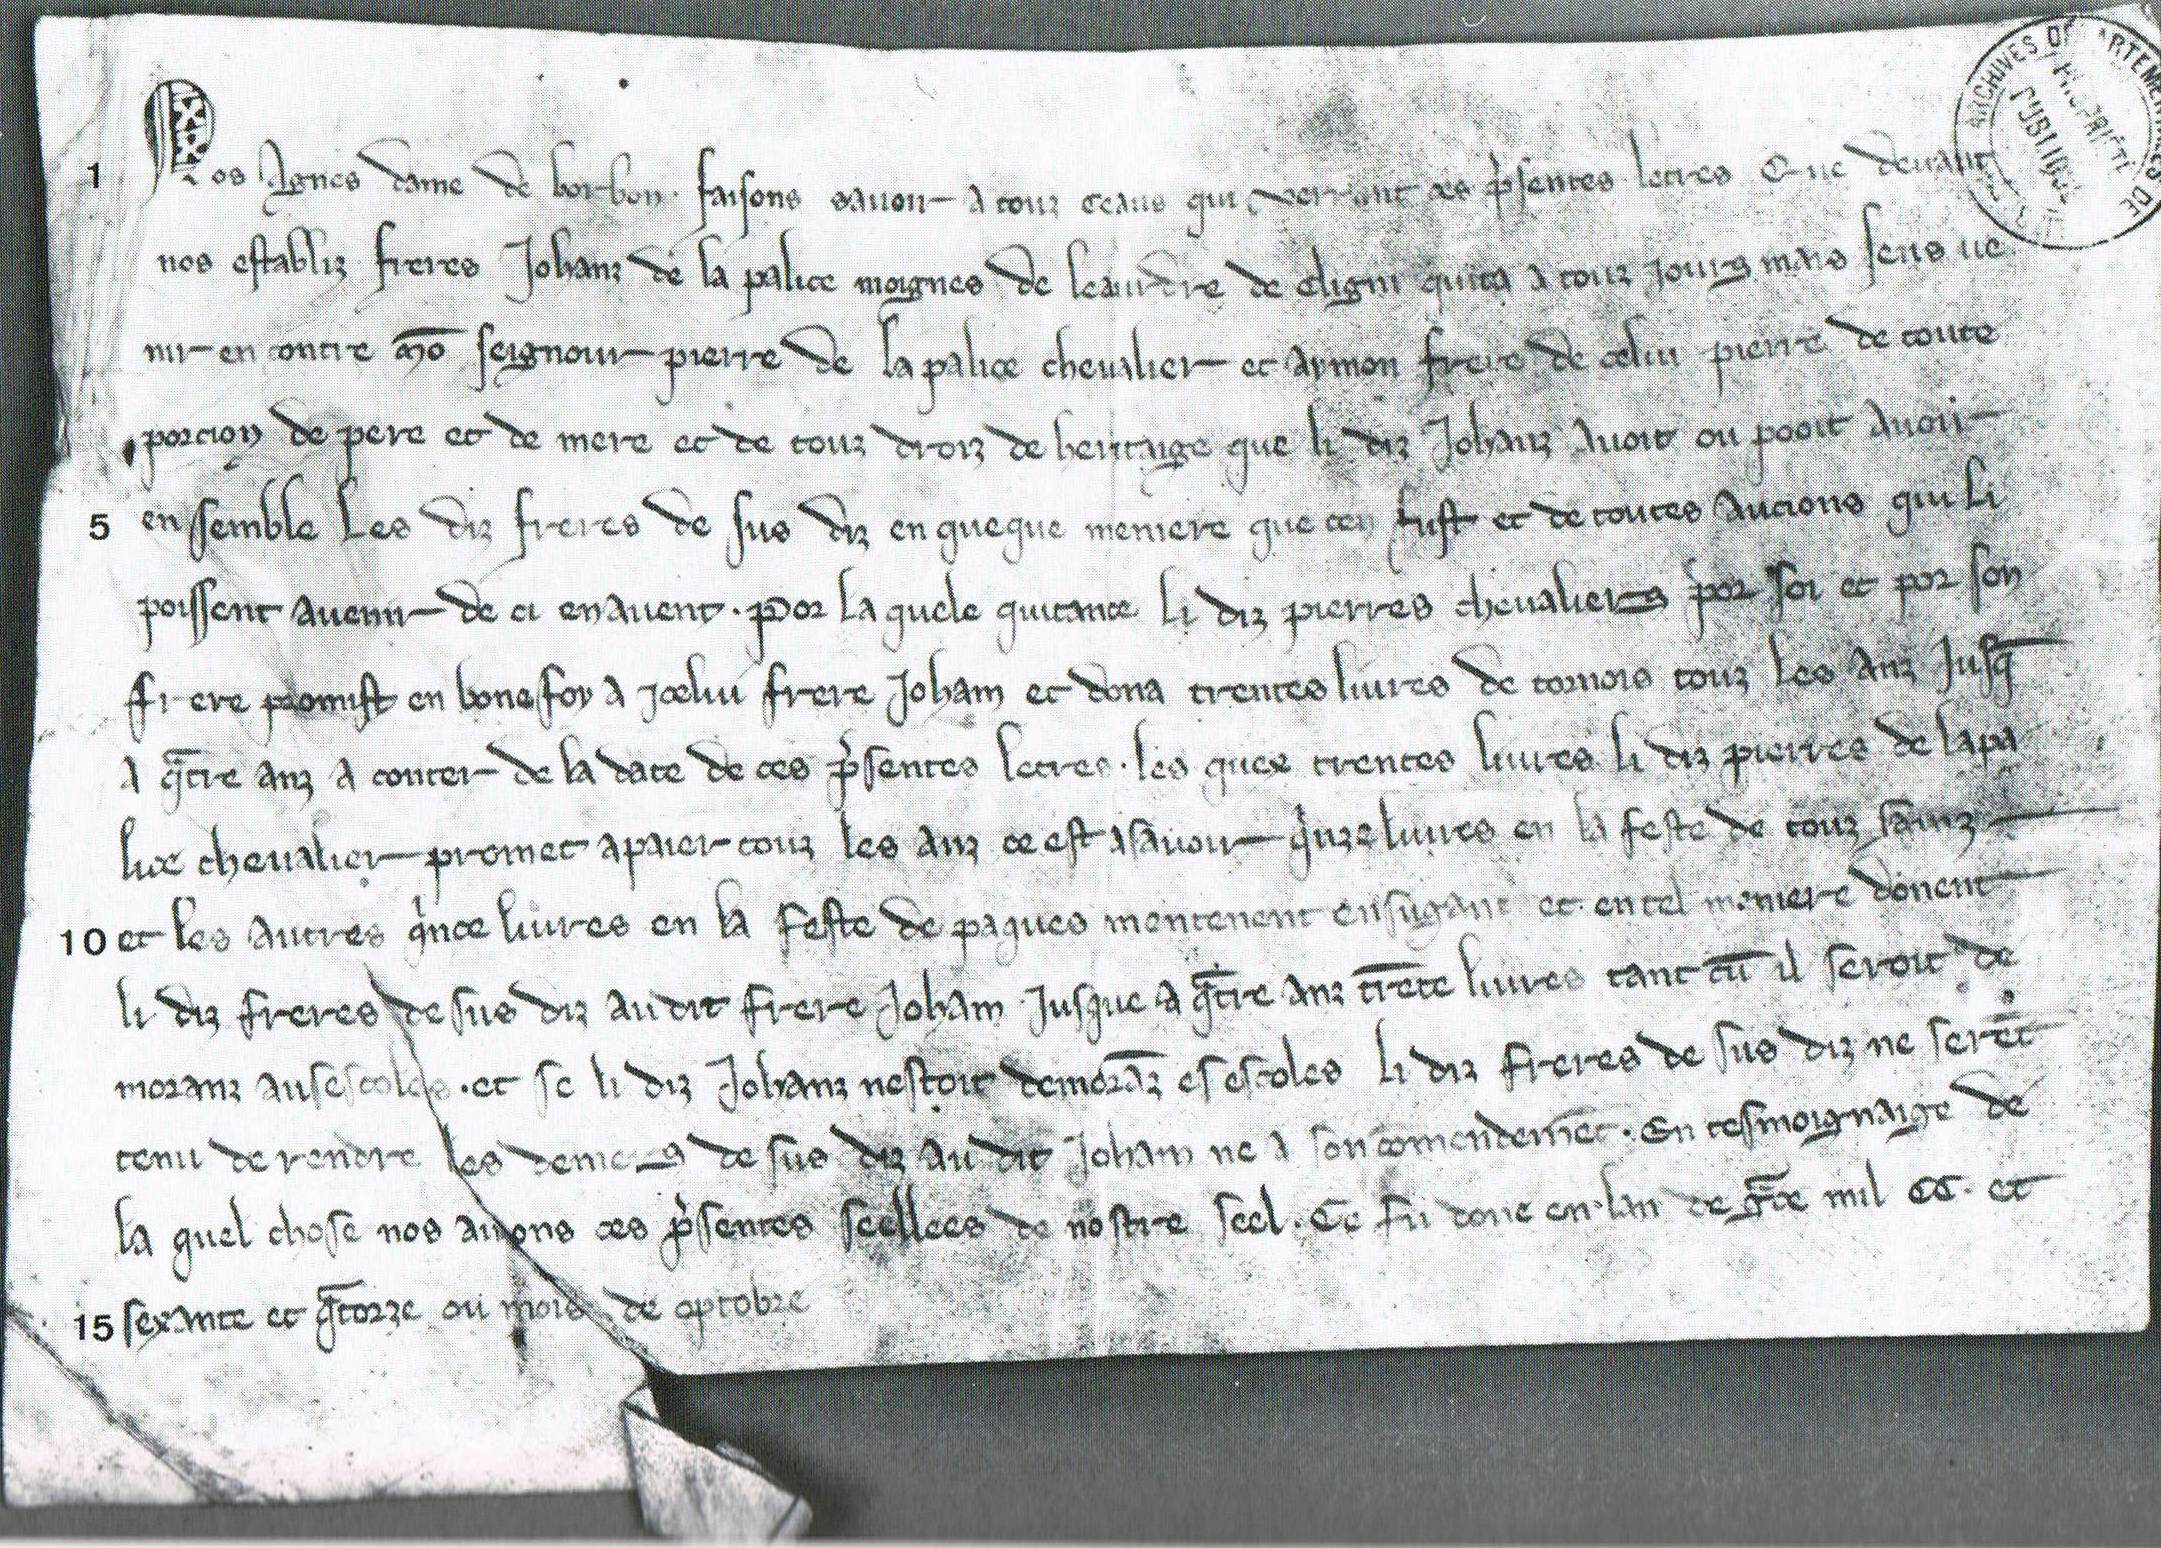 1 Nos Agnes dame de borbon. faisons sauoir a touz ceaus qui verront ces p'sentes letres Que deuant
nos establiz freres Johanz de la palice moignes de leaurdre de cligni quita a touz jours mais sens ue
nir en contre mō seignour pierre de la palice cheualier et aymon frere de celui pierre de toute
porcion de pere et de mere et de touz droiz de heritaige que li diz Johanz auoit ou pooit auoir
5 en semble les diz freres de sus diz en queque meniere que cen fust et de toutes aucions qui li
poissent auenir de ci enauent. por la quele quitance li diz pierres cheualiers por soi et por son
frere promist en bone foy a icelui frere Joham et dona trentes liures de tornois touz les anz Jusq̄
a q̄tre anz a conter de la date de ces p'sentes letres. les quex trentes liures li diz pierres de la pa
lice cheualier promet a paier touz les anz ce est asauoir q'nze liures en la feste de touz sainz
10 et les autres q'nce liures en la feste de paques mentenent ensugant et en tel meniere donent
li diz freres de sus diz au dit frere Joham Jusque a q̄tre anz trēte liures tant cū il seroit de
moranz aus escoles. et se li diz Johanz nestoit demorāz es escoles li diz freres de sus diz ne serēt
tenu de rendre les deniers de sus diz au dit Joham ne a son comendemēt. En tesmoignaige de
la quel chose nos auons ces p'sentes seellees de nostre seel. Ce fu done en lan de gāce mil CC. et
15 sexante et q̄torze ou mois de optobre
ARCHIVES DEPARTEMENTALES DE
PROPRIÉTÉ
PUBLIQUE